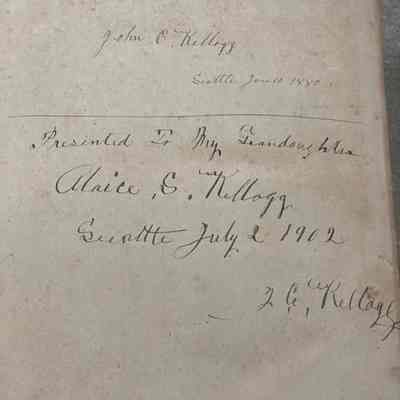 John C. Kellogg
Seattle Jan 10 1880
Presented To My Grandaughter
Alaice, S. Kellogg
Seattle July 2 1902
Kellogg